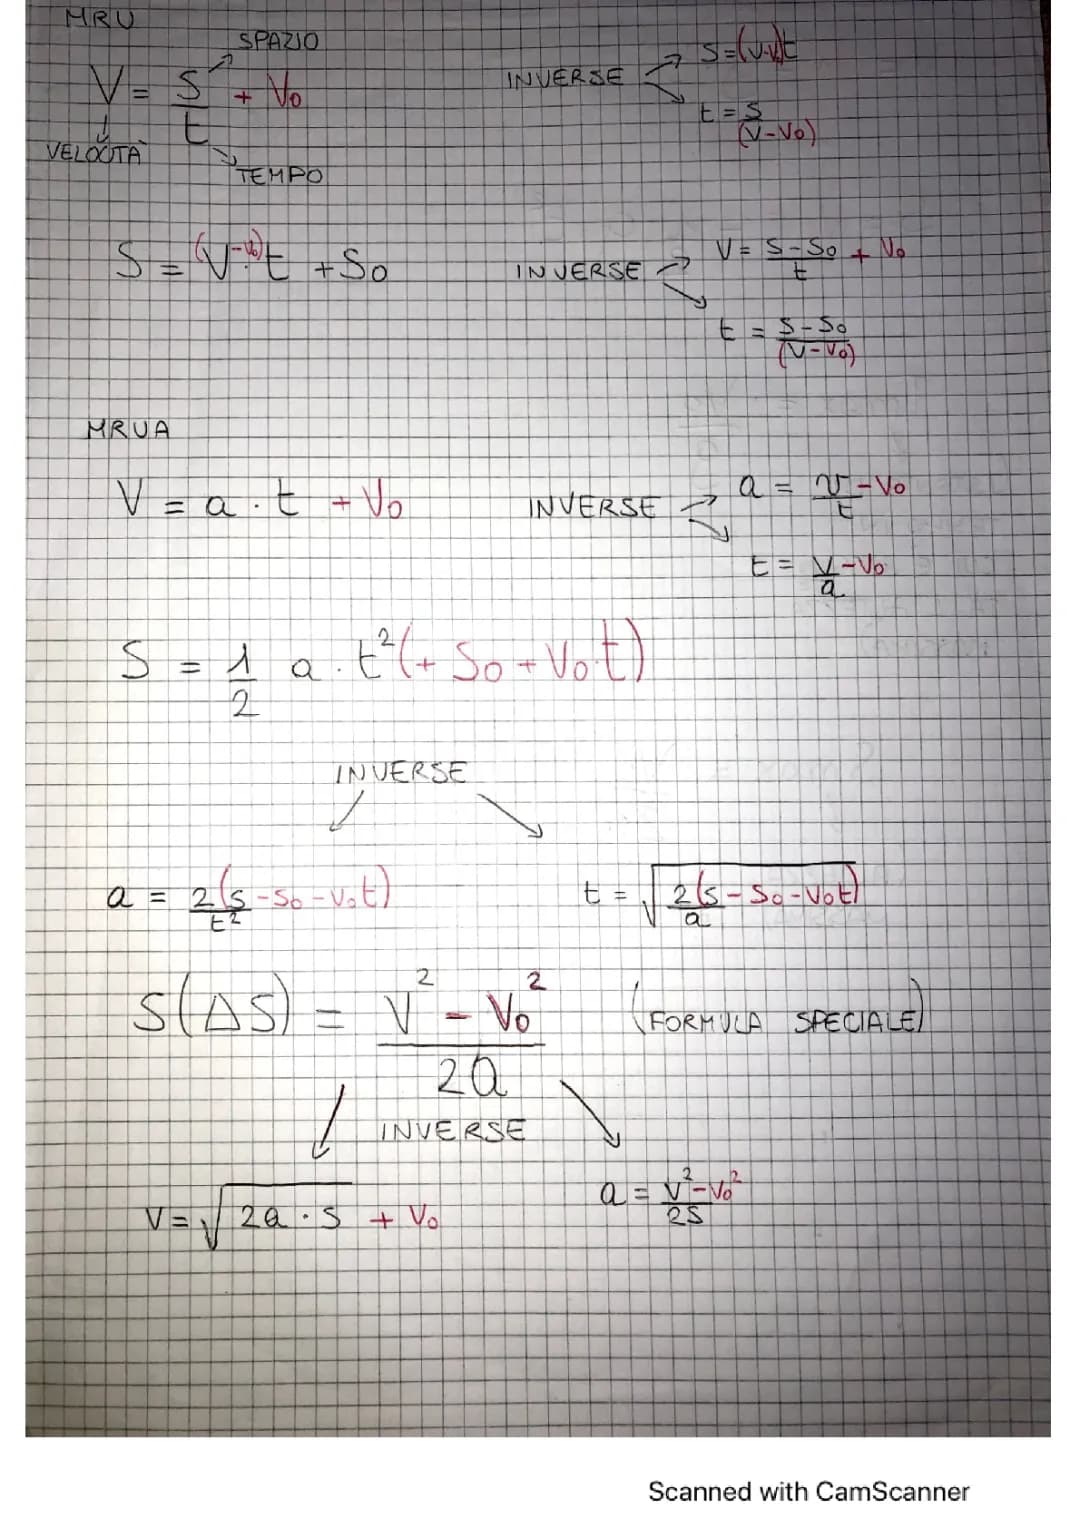 MRU
SPAZIO
V = S/t + V₀
VELOCITÀ
TEMPO
INVERSE
S=(V-V₀)t
t = S/(V-V₀)
S = (V-V₀)·t + S₀
INVERSE
V = S-S₀/t + V₀
t = S-S₀/(V-V₀)
MRUA
V = a · t + V₀
INVERSE
a = V-V₀/t
t = V-V₀/a
S = 1/2 a · t² (+ S₀ + V₀·t)
INVERSE
a = 2(S-S₀-V₀t)/t²
t = √2(S-S₀-V₀t)/a
S(ΔS) = V² - V₀²/2a (FORMULA SPECIALE)
INVERSE
V = √2a · S + V₀
a = V²-V₀²/2S
Scanned with CamScanner